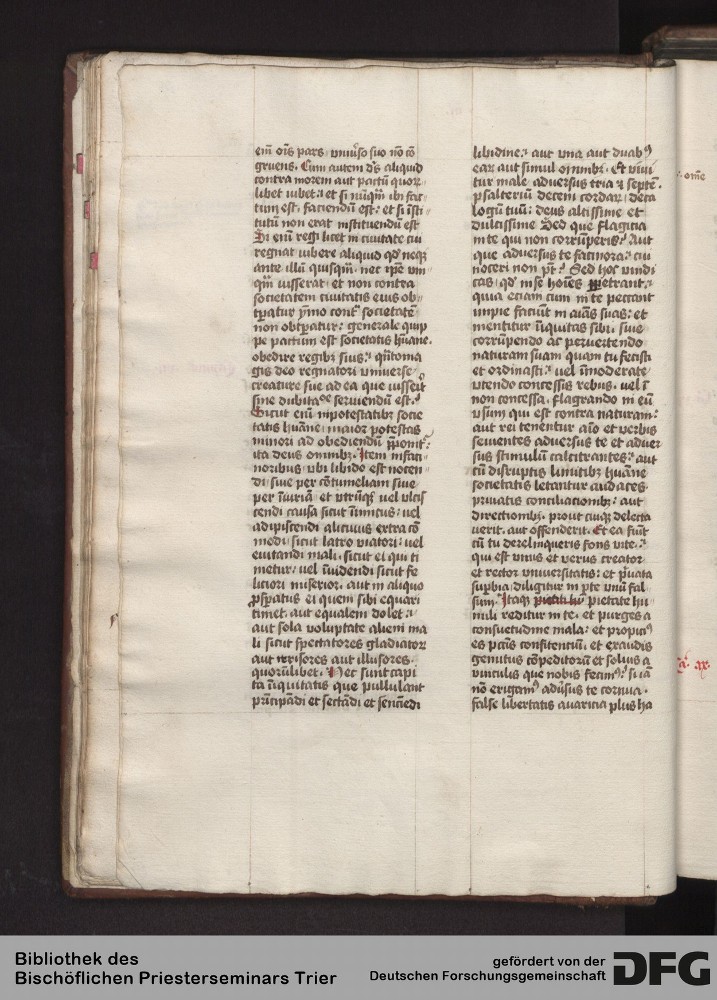 em̄ oīs pars vniu̓so suo nō cō
gruens. Cum autem dꝰs aliquid
contra morem aut pactū quor
libet iubet: et si nūq̄m ibi fac
tum est. faciendū est: et si īsti
tutū non erat instituendū est
Si enī regi licet in ciuitate cui
regnat iubere aliquid qd̓ neqꝫ
ante illū quisq̄m. nec ip̄e vm
q̄m iusserat: et non contra
societatem ciuitatis eius ob
tp̄atur ymo contᵃ societatē
non obtp̄atur: generale quip
pe pactum est societatis hūane.
obedire regibꝫ suis: q̄ntoma
gis deo regnatori vniuerse
creature sue ad ea que iusserit
sine dubitacōe seruiendū est.
Sicut enī nipotestatibꝫ socie
tatis hūane maior potestas
minori ad obediendū p̄ponitᷣ:
ita deus omnibꝫ. Item in faci
noribus vbi libido est nocen
di siue per cōtumeliam siue
per īuriā: et vtrūqꝫ vel vlcis
cendi causa sicut īimicus: uel
adipiscendi alicuius extra cō
modi: sicut latro viatori: uel
euitandi mali. sicut ei qui ti
metur: uel īuidendi sicut fe
liciori miserior. aut in aliquo
ꝓsp̄atus ei quem sibi equari
timet. aut equalem dolet:
aut sola voluptate alieni ma
li sicut spectatores gladiator
aut irrisores aut illusores
quorūlibet. Hec sunt capi
ta iniquitatis que pullulant
prīcipādi et sectādi et sencīedi
libidine: aut vna aut duabꝰ
ear aut simul omnibꝫ. Et viui
tur male aduersus tria ꝛ septē.
psalteriū decem cordar deca
logū tuū: deus altissime et
dulcissime Sed que flagicia
in te qui non corrūperis: Aut
que aduersus te facinora: cui
noceri non pt̄: Sed hoc vindi
cas qd̓ in se hoīes ꝑpetrant:
quia eciam cum in te peccant
impie faciūt in aīas suas: et
mentitur iniquitas sibi. siue
corrūpendo ac peruertendo
naturam suam quam tu fecisti
et ordinasti: vel īmoderate
vtendo concessis rebus. vel ī
non concessa. flagrando in eū
vsum qui est contra naturam:
aut rei tenentur aīo et verbis
seuientes aduersus te et aduer
sus stimulū calcitrantes: aut
cū disruptis limitibꝫ hūane
societatis letantur audaces
priuatis conciliacionibꝫ: aut
directionibꝫ. prout cuiqꝫ delecta
uerit. aut offenderit. Et ea fiūt
cū tu derelinqueris fons vite:
qui est vnus et verus creator
et rector vniuersitatis: et p̓uata
sup̄bia diligitur in p̄te vnū fal
sum. Itaqꝫ pietati hu pietate hu
mili reditur in te. et purges a
consuetudine mala: et propiciꝰ
es pctīs confitentiū. et exaudis
gemitus cōpeditorū et soluis a
vinculis que nobis fecimꝰ: si iā
nō erigamꝰ adūsus te cornua.
false libertatis auaricia plus ha
Bibliothek des
Bischöflichen Priesterseminars Trier
gefördert von der
Deutschen Forschungsgemeinschaft
DFG